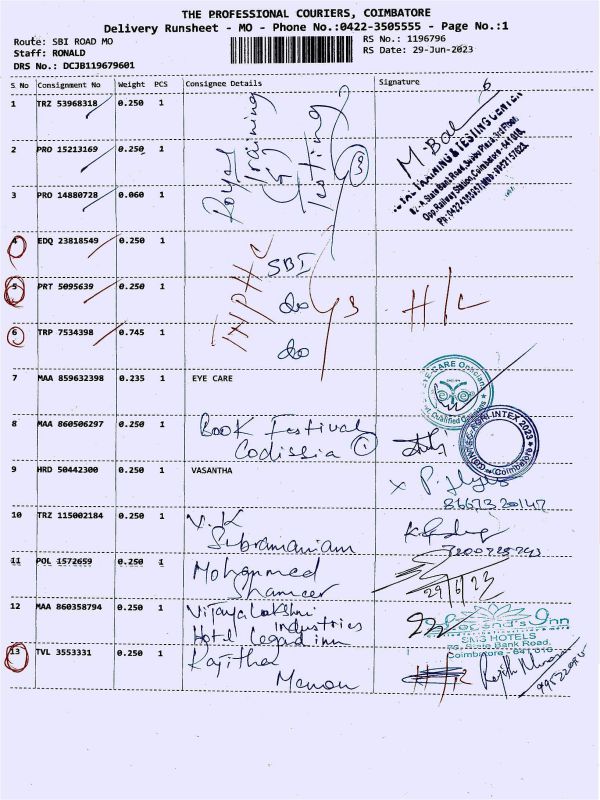 THE PROFESSIONAL COURIERS, COIMBATORE
Delivery Runsheet - MO - Phone No.:0422-3505555 - Page No.:1
Route: SBI ROAD MO
RS No.: 1196796
Staff: RONALD
RS Date: 29-Jun-2023
DRS No.: DCJB119679601
S No Consignment No Weight PCS Consignee Details Signature
6
1 TRZ 53968318 0.250 1
2 PRO 15213169 0.250 1
3 PRO 14880728 0.060 1
Royal
Training
Testing
3
M. Bal
TRAINING & TESTING CENTER
Opp. Railway Station, Coimbatore - 641018
4 EDQ 23818549 0.250 1 SBI
5 PRT 5095639 0.250 1 do 43 H/C
6 TRP 7534398 0.745 1 do
7 MAA 859632398 0.235 1 EYE CARE
EYE-CARE Opticians
8 MAA 860506297 0.250 1 Book Festival
Codissia 1
AGRI INTEX 2023
Coimbatore
9 HRD 50442300 0.250 1 VASANTHA
x P.
8667320147
10 TRZ 115002184 0.250 1 V.K
Subramaniam
11 POL 1572659 0.250 1 Mohammed
Shameer
29/6/23
12 MAA 860358794 0.250 1 Vijayalakshmi
industries
Hotel Legend inn
Legend's Inn
SMS HOTELS
State Bank Road,
Coimbatore - 641 018
13 TVL 3553331 0.250 1 Rajitha
Menon
H/C